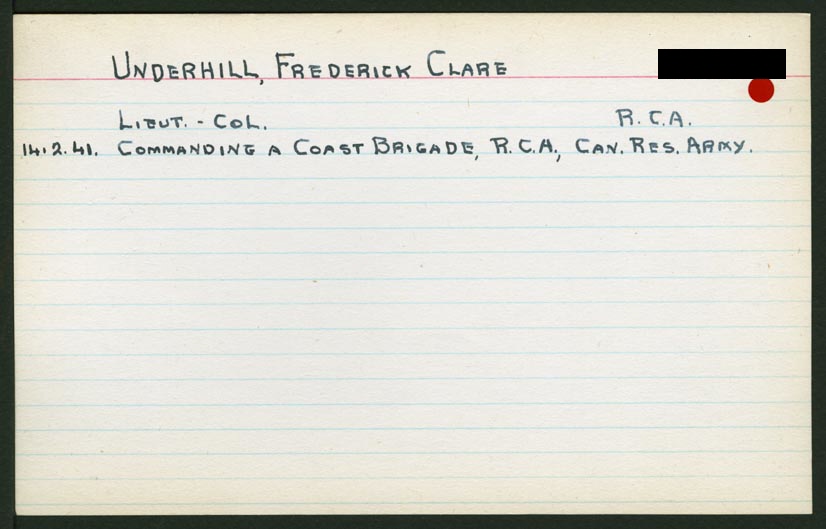 Underhill, Frederick Clare
Lieut. - Col. R.C.A.
14.2.41. Commanding a Coast Brigade, R.C.A., Can. Res. Army.